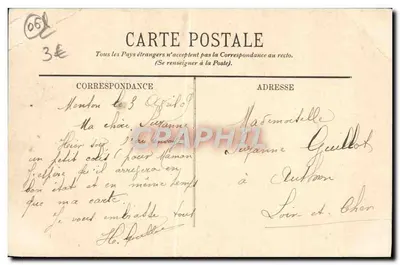 06
3€
CARTE POSTALE
Tous les Pays étrangers n'acceptent pas la Correspondance au recto.
(Se renseigner à la Poste).
CORRESPONDANCE
ADRESSE
Menton le 3 Avril
Ma chère Suzanne
Hier soir
un petit colis pour Maman
J'espère qu'il arrivera en
bon état et en même temps
que ma carte.
Je vous embrasse tous
H. Guillot
Mademoiselle
Suzanne Guillot
à
Loir et Cher
CPAPHIL